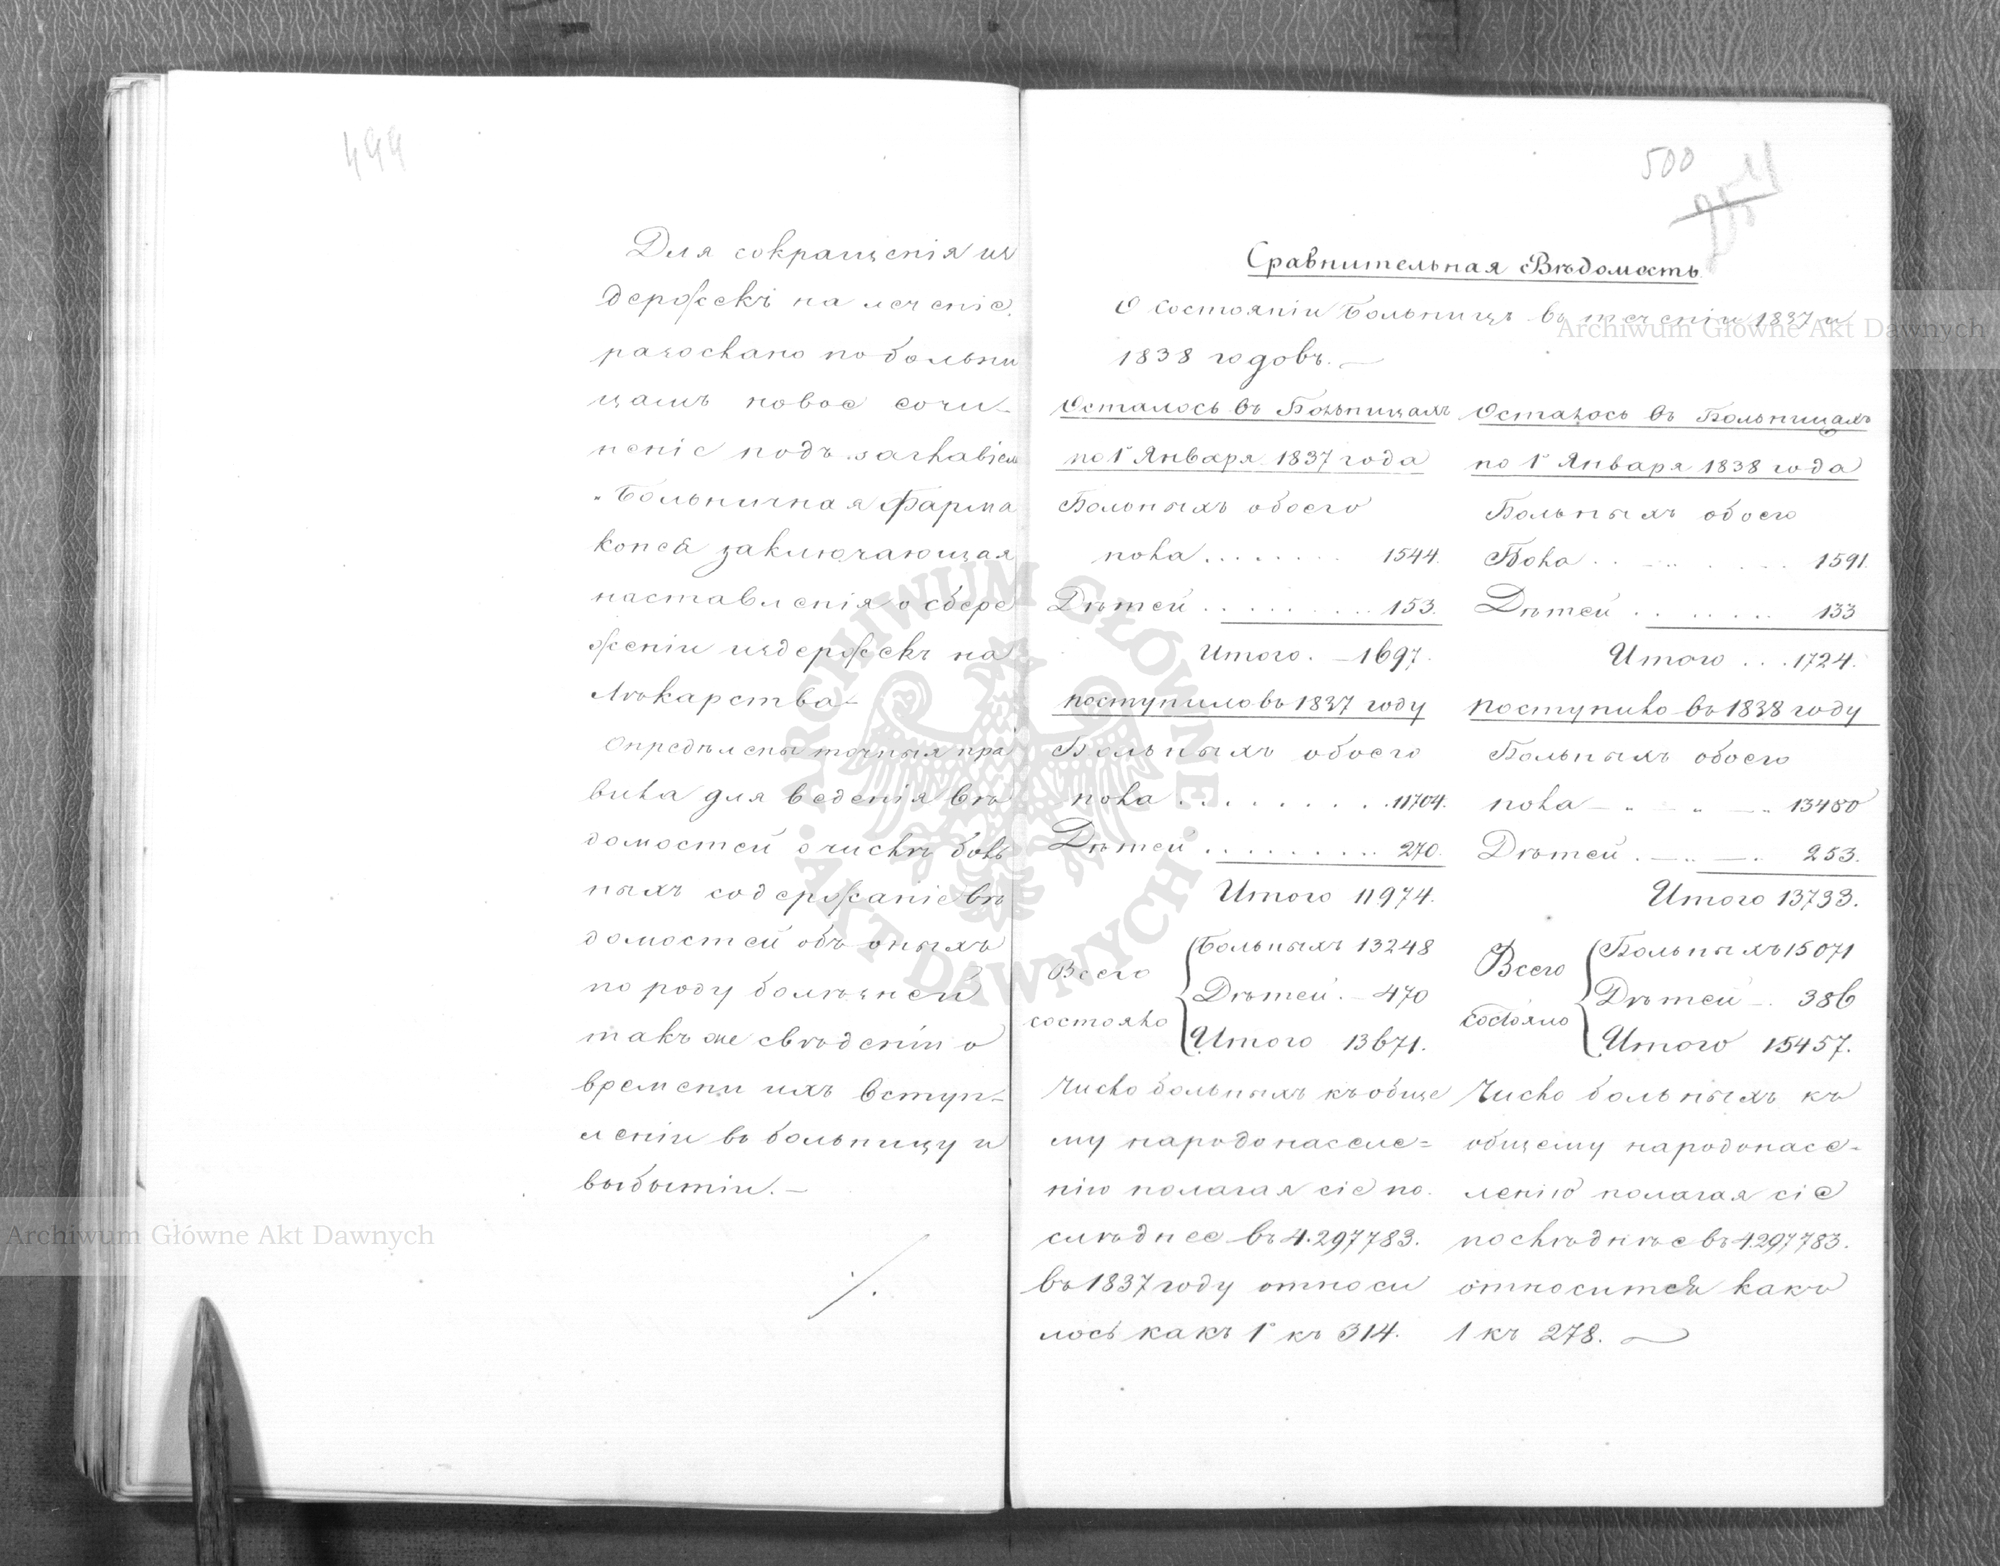 499
Для сокращенія из
держекъ на леченіе,
разослано по больни
цамъ новое сочи-
неніе подъ заглавіем
„Больничная Фарма
копея заключающая
наставленія о сбере
женіи издержекъ на
Лѣкарства—
Опредѣлены точныя пра
вила для веденія вѣ
домостей о числѣ боль
ныхъ содержаніе вѣ
домостей объ оныхъ
по роду болѣзней
такъ же свѣденіи о
времени ихъ вступ-
леніи въ больницу и
выбытіи.—
./.
500
254
Сравнительная Вѣдомость
О состояніи Больницъ въ теченіи 1837 и
1838 годовъ.—
Осталось въ Больницахъ
по 1е Января 1837 года
Больныхъ обоего
пола ........ 1544.
Дѣтей ......... 153.
Итого. — 1697.
поступило въ 1837 году
Больныхъ обоего
пола .......... 11704.
Дѣтей ......... 270.
Итого 11974.
Всего
состояло
Больныхъ 13248
Дѣтей. — 470
Итого 13671.
Число больныхъ къ обще
му народонаселе=
нію полагая сіе по.
слѣднее въ 4.297783.
въ 1837 году относи
лось какъ 1е къ 314.
Осталось въ Больницахъ
по 1е Января 1838 года
Больныхъ обоего
Пола ........ 1591.
Дѣтей ....... 133
Итого ... 1724.
Поступило въ 1838 году
Больныхъ обоего
пола — „ — „ — „ 13480
Дѣтей . — „ — . 253.
Итого 13733.
Всего
состояло
Больныхъ 15071
Дѣтей —. 386
Итого 15457.
Число больныхъ къ
общему народонасе-
ленію полагая сіе
послѣднѣе въ 4.297783.
относится какъ
1 къ 278. —
Archiwum Główne Akt Dawnych
Archiwum Główne Akt Dawnych
ARCHIWUM GŁÓWNE
AKT DAWNYCH